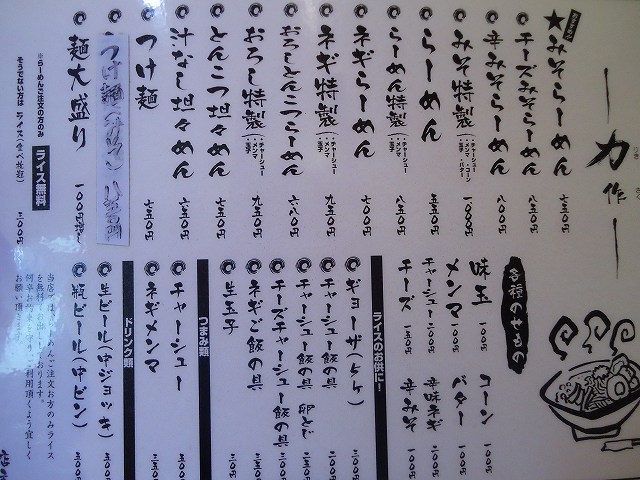 力作
おすすめ
★みそらーめん 七五〇円
チーズみそらーめん 八五〇円
辛みそらーめん 八〇〇円
みそ特製(チャーシュー・メンマ・コーン・バター) 一〇〇〇円
らーめん 五五〇円
らーめん特製(チャーシュー・メンマ・玉子) 八五〇円
ネギらーめん 七〇〇円
ネギ特製(チャーシュー・メンマ・玉子) 九五〇円
おろしとんこつらーめん 六八〇円
おろし特製(チャーシュー・メンマ・玉子) 九五〇円
とんこつ坦々めん 七五〇円
汁なし坦々めん 六五〇円
つけ麺 七五〇円
つけ麺
麺大盛り 一〇〇円増し
※らーめんご注文の方のみ ライス無料
そうでない方は ライス(食べ放題) 三〇〇円
各種のせもの
味玉 一〇〇円
メンマ 一〇〇円
チャーシュー 二〇〇円
チーズ 一五〇円
コーン 一〇〇円
バター 一〇〇円
辛味ネギ
辛みそ
ライスのお供に!
ギョーザ(5ケ)
チャーシュー飯の具
チャーシュー飯の具 卵とじ
チーズチャーシュー飯の具
ネギご飯の具
生玉子
つまみ類
チャーシュー
ネギメンマ
ドリンク類
生ビール(中ジョッキ)
瓶ビール(中ビン)
当店ではらーめんご注文お方のみライス
を無料
何卒お
お願い頂